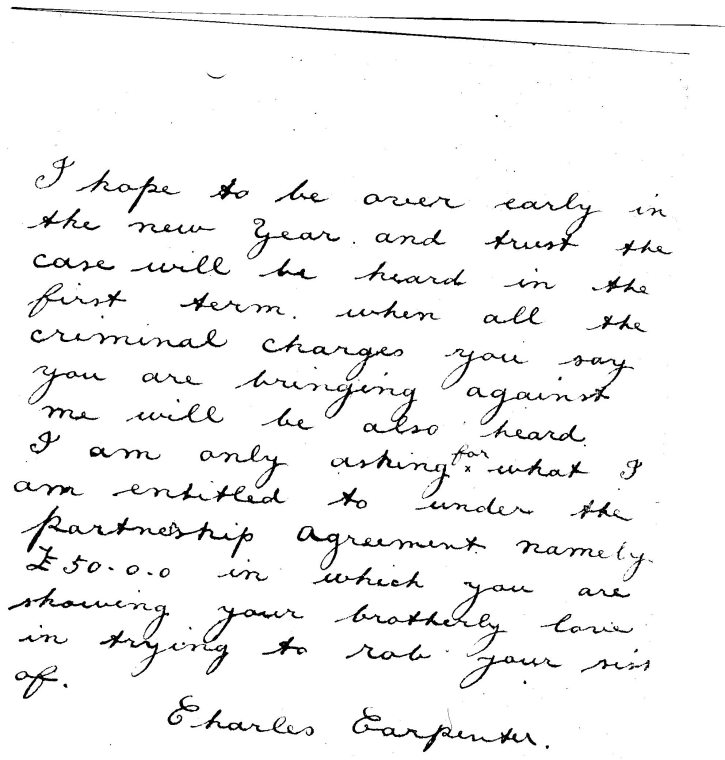 I hope to be over early in
the new Year. and trust the
case will be heard in the
first term. when all the
criminal charges you say
you are bringing against
me will be also heard.
I am only asking for x what I
am entitled to under the
partneship agreement namely.
£50.0.0 in which you are
showing your brotherly love
in trying to rob your siss
of.
Charles Carpenter.